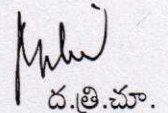 ద.త్రి.చూ.